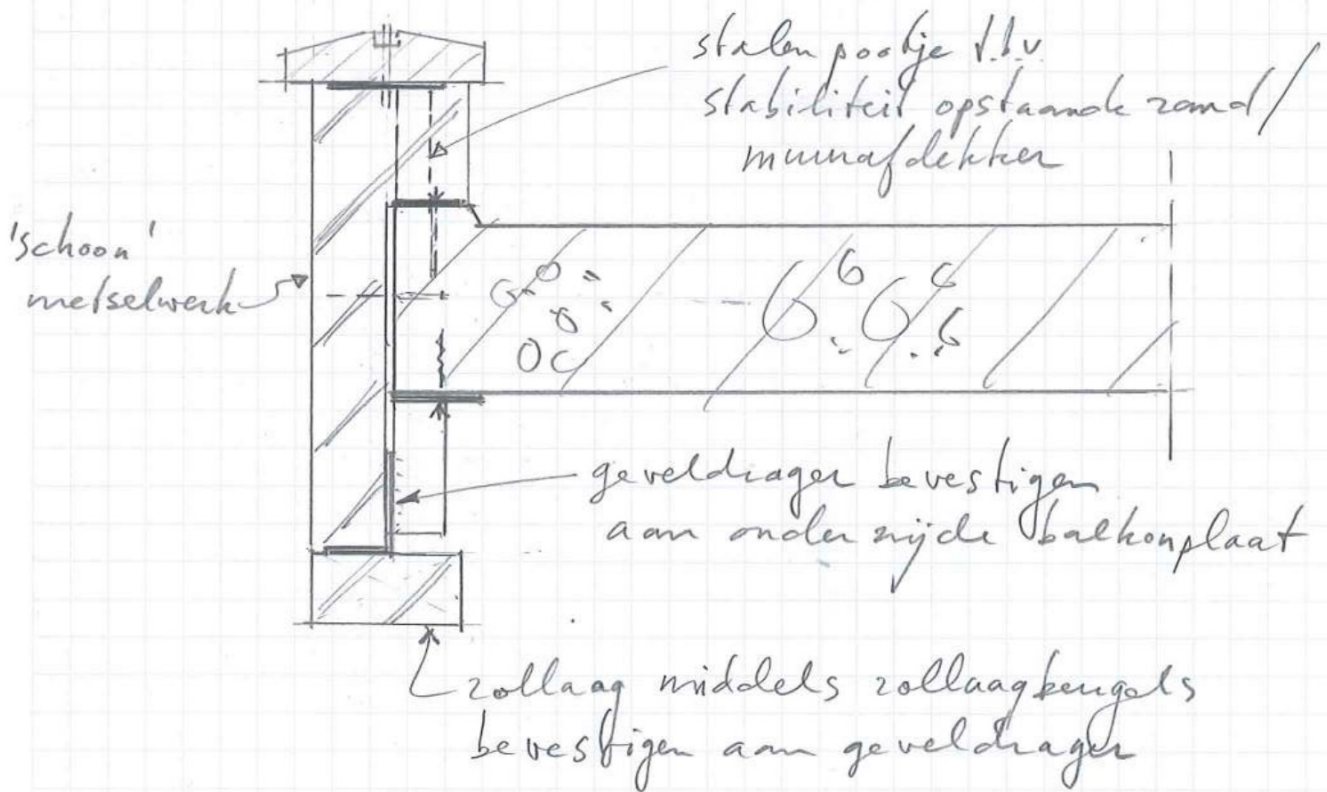 stalen pootje t.b.v.
stabiliteit opstaande rand/
muurafdekker
'schoon'
metselwerk
geveldrager bevestigen
aan onderzijde balkonplaat
rollaag middels rollaagbeugels
bevestigen aan geveldrager